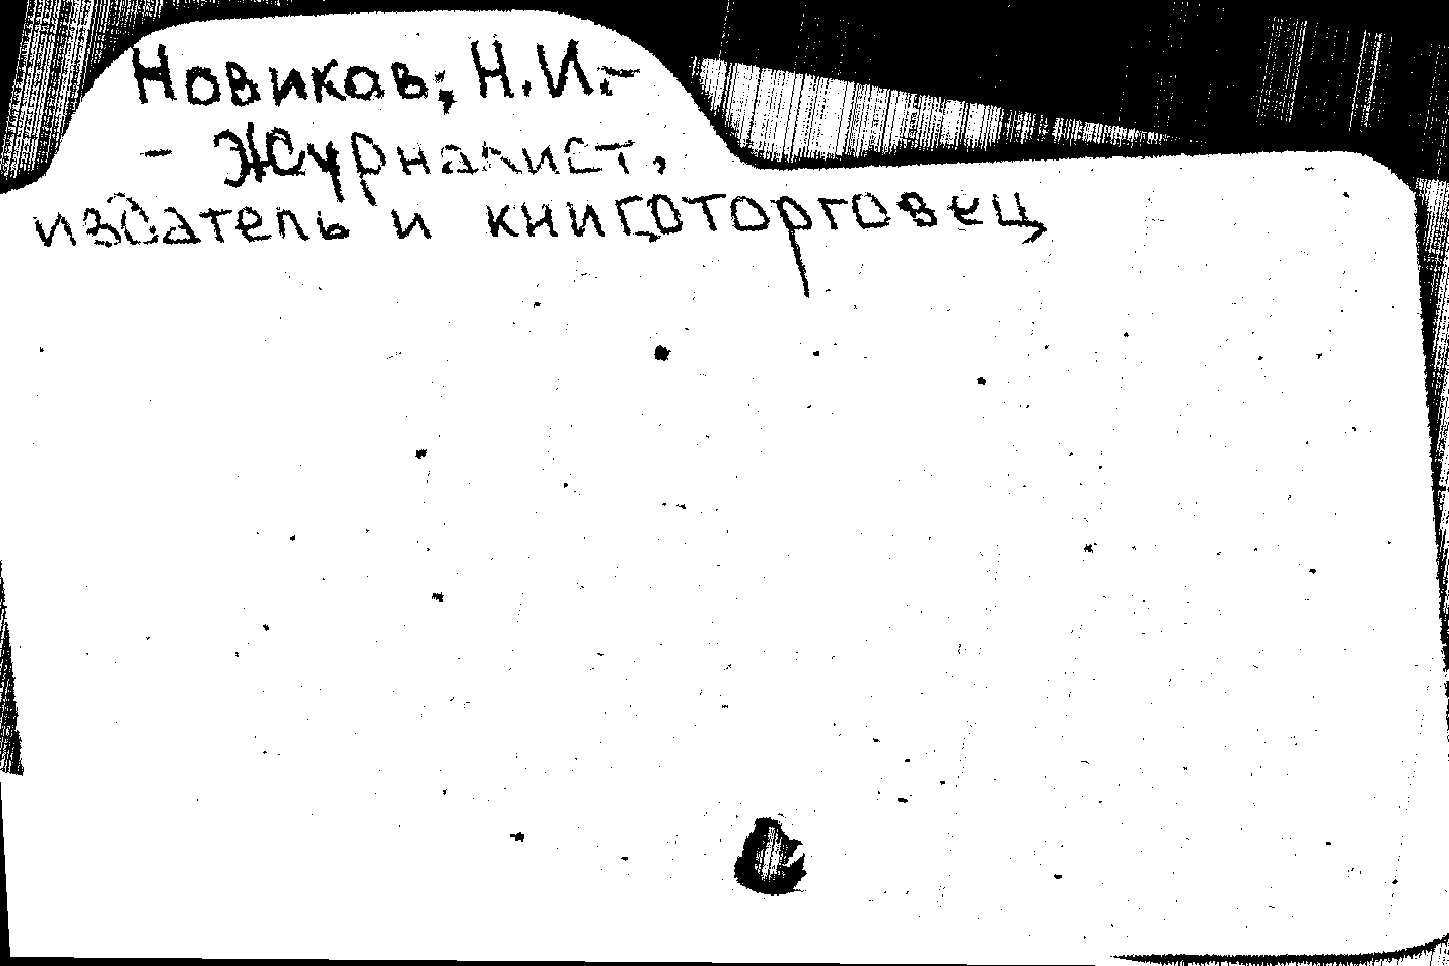 Новиков, Н.И. –
– Журналист,
издатель и книготорговец